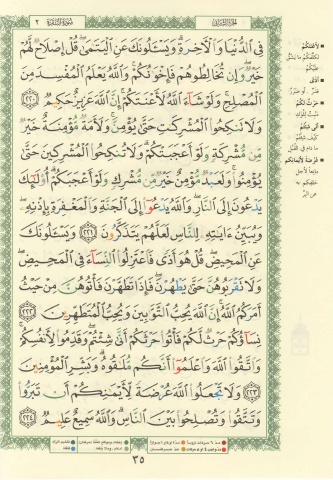 الجزء الثاني سورة البقرة ٢
فِي الدُّنْيَا وَالْآخِرَةِ ۗ وَيَسْأَلُونَكَ عَنِ الْيَتَامَىٰ ۖ قُلْ إِصْلَاحٌ لَّهُمْ
خَيْرٌ ۖ وَإِن تُخَالِطُوهُمْ فَإِخْوَانُكُمْ ۚ وَاللَّهُ يَعْلَمُ الْمُفْسِدَ مِنَ
الْمُصْلِحِ ۚ وَلَوْ شَاءَ اللَّهُ لَأَعْنَتَكُمْ ۚ إِنَّ اللَّهَ عَزِيزٌ حَكِيمٌ ٢٢٠
وَلَا تَنكِحُوا الْمُشْرِكَاتِ حَتَّىٰ يُؤْمِنَّ ۚ وَلَأَمَةٌ مُّؤْمِنَةٌ خَيْرٌ
مِّن مُّشْرِكَةٍ وَلَوْ أَعْجَبَتْكُمْ ۗ وَلَا تُنكِحُوا الْمُشْرِكِينَ حَتَّىٰ
يُؤْمِنُوا ۚ وَلَعَبْدٌ مُّؤْمِنٌ خَيْرٌ مِّن مُّشْرِكٍ وَلَوْ أَعْجَبَكُمْ ۗ أُولَٰئِكَ
يَدْعُونَ إِلَى النَّارِ ۖ وَاللَّهُ يَدْعُو إِلَى الْجَنَّةِ وَالْمَغْفِرَةِ بِإِذْنِهِ ۖ
وَيُبَيِّنُ آيَاتِهِ لِلنَّاسِ لَعَلَّهُمْ يَتَذَكَّرُونَ ٢٢١ وَيَسْأَلُونَكَ
عَنِ الْمَحِيضِ ۖ قُلْ هُوَ أَذًى فَاعْتَزِلُوا النِّسَاءَ فِي الْمَحِيضِ ۖ
وَلَا تَقْرَبُوهُنَّ حَتَّىٰ يَطْهُرْنَ ۖ فَإِذَا تَطَهَّرْنَ فَأْتُوهُنَّ مِنْ حَيْثُ
أَمَرَكُمُ اللَّهُ ۚ إِنَّ اللَّهَ يُحِبُّ التَّوَّابِينَ وَيُحِبُّ الْمُتَطَهِّرِينَ ٢٢٢
نِسَاؤُكُمْ حَرْثٌ لَّكُمْ فَأْتُوا حَرْثَكُمْ أَنَّىٰ شِئْتُمْ ۖ وَقَدِّمُوا لِأَنفُسِكُمْ ۚ
وَاتَّقُوا اللَّهَ وَاعْلَمُوا أَنَّكُم مُّلَاقُوهُ ۗ وَبَشِّرِ الْمُؤْمِنِينَ
٢٢٣ وَلَا تَجْعَلُوا اللَّهَ عُرْضَةً لِّأَيْمَانِكُمْ أَن تَبَرُّوا
وَتَتَّقُوا وَتُصْلِحُوا بَيْنَ النَّاسِ ۗ وَاللَّهُ سَمِيعٌ عَلِيمٌ ٢٢٤
٣٥
لأعنتكم
أذى
حرث لكم
أنى شئتم
عرضة لأيمانكم